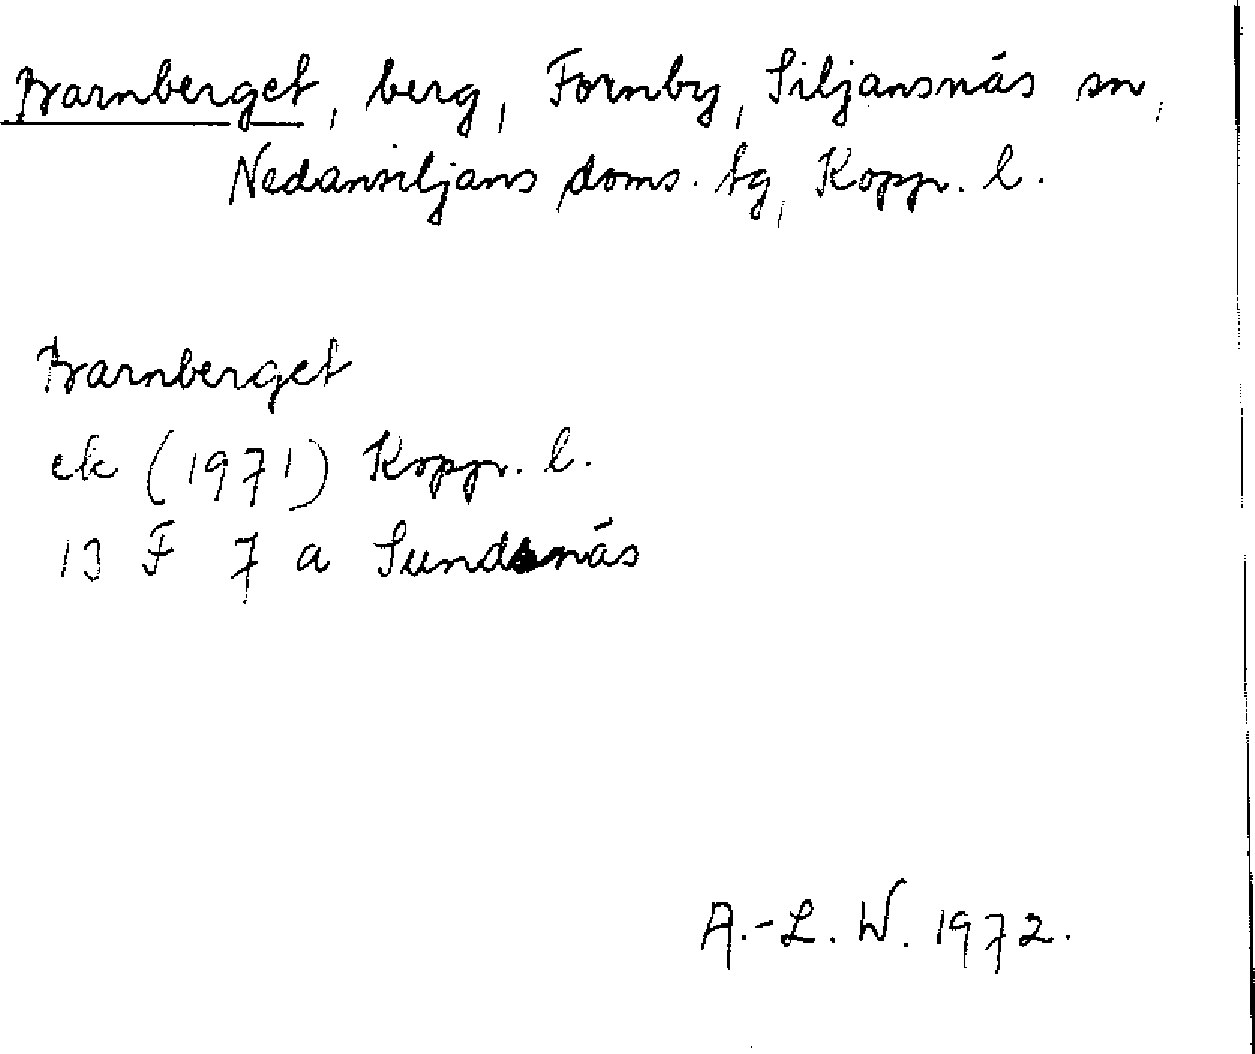 Kvarnberget, berg, Fornby, Siljansnäs sn,
Nedansiljans doms. tg, Kopp. l.
Kvarnberget
ek (1971) Kopp. l.
13 F 7 a Sundsnäs
A.-L. W. 1972.